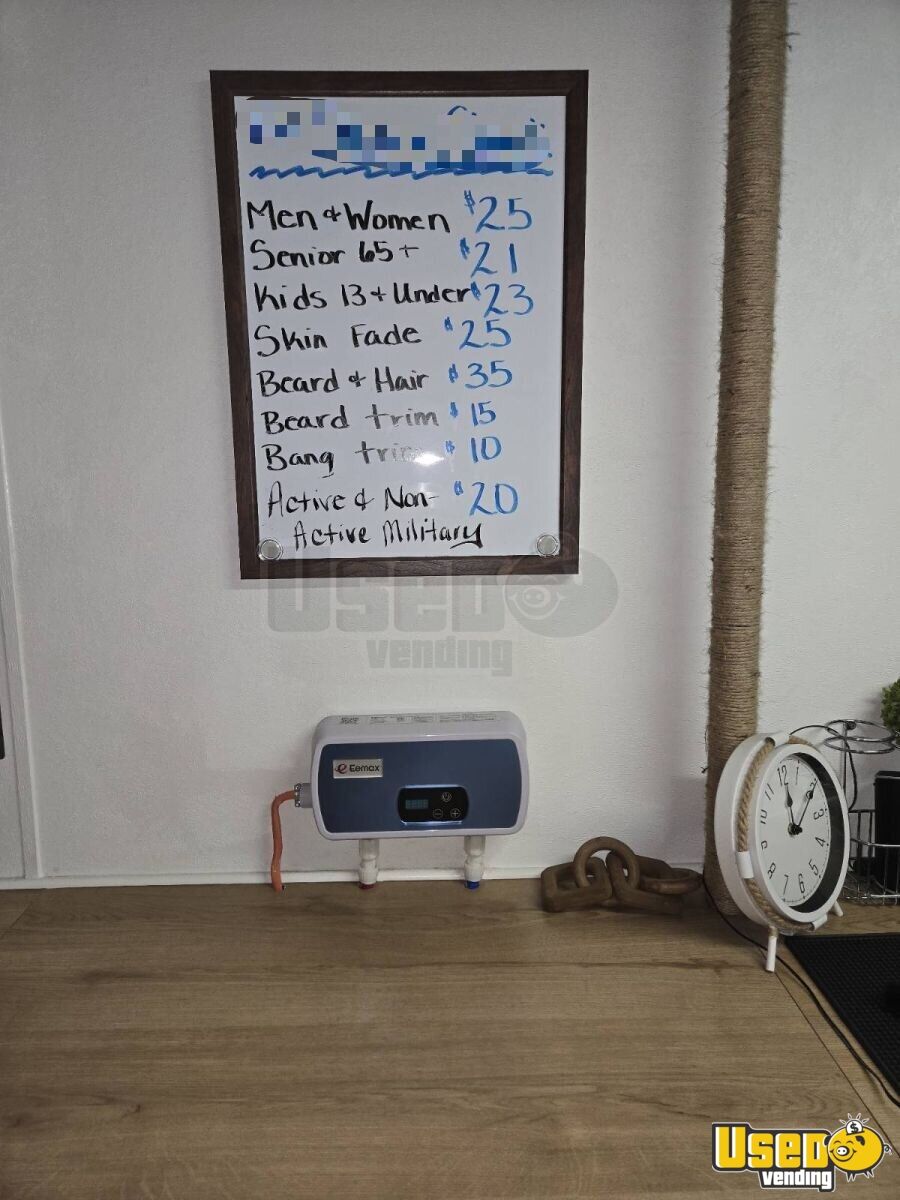 Men & Women $25
Senior 65+ $21
Kids 13 & Under $23
Skin Fade $25
Beard & Hair $35
Beard trim $15
Bang trim $10
Active & Non- $20
Active Military
Used
vending
Eemax
12 1 3 4 5 6 7 8 9 10 11
Used
vending